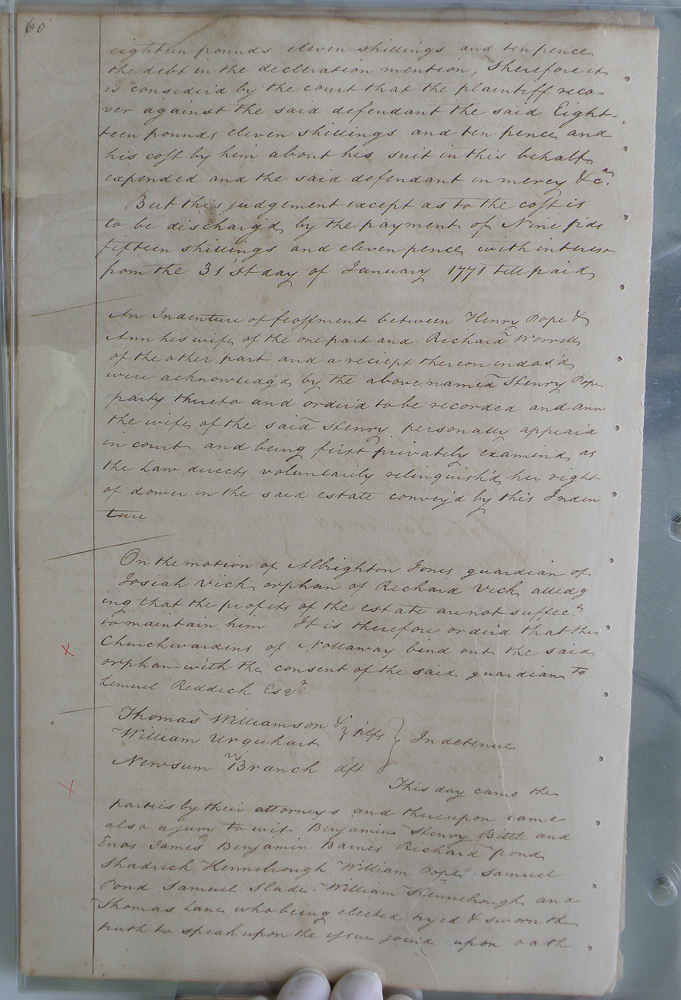 60
eighteen pounds eleven shillings and ten pence
the debt in the decleration mention, Therefore it
is consider'd by the court that the plaintiff reco-
ver against the said defendant the said Eight-
teen pounds eleven shillings and ten pence and
his cost by him about his suit in this behalf
expended and the said defendant in mercy &c.
But this judgement except as to the cost is
to be discharg'd by the payment of Nine pds
fifteen shillings and eleven pence with interest
from the 31st day of January 1771 till paid
An Indenture of feoffment between Henry Pope &
Ann his wife of the one part and Richard Worrell
of the other part and a reciept thereon endors'd
were acknowledg'd by the above named Henry Pope
party thereto and order'd to be recorded and ann
the wife of the said Henry personally appear'd
in court and being first privately examined as
the Law directs voluntarily relinquish'd her right
of dower in the said estate convey'd by this Inden
ture
On the motion of Albrighton Jones guardian of
Josiah Vick orphan of Richard Vick alledg
ing that the profits of the estate are not suffect
to maintain him It is therefore order'd that the
Churchwardens of Nottaway bind out the said
orphan with the consent of the said guardian to
Lemuel Reddick Esqr
Thomas Williamson &
William Urquhart } plfs } In detenue
vs
Newsum Branch dft
This day came the
parties by their attorneys and thereupon came
also a jury to wit, Benjamin Henry Bittle and
Enos James Benjamin Barnes Richard Pond
Shadrick Kennebrough William Pope Samuel
Pond Samuel Slade William Kennebrough and
Thomas Lane who being elected try'd & sworn the
truth to speak upon the issue joined upon oath